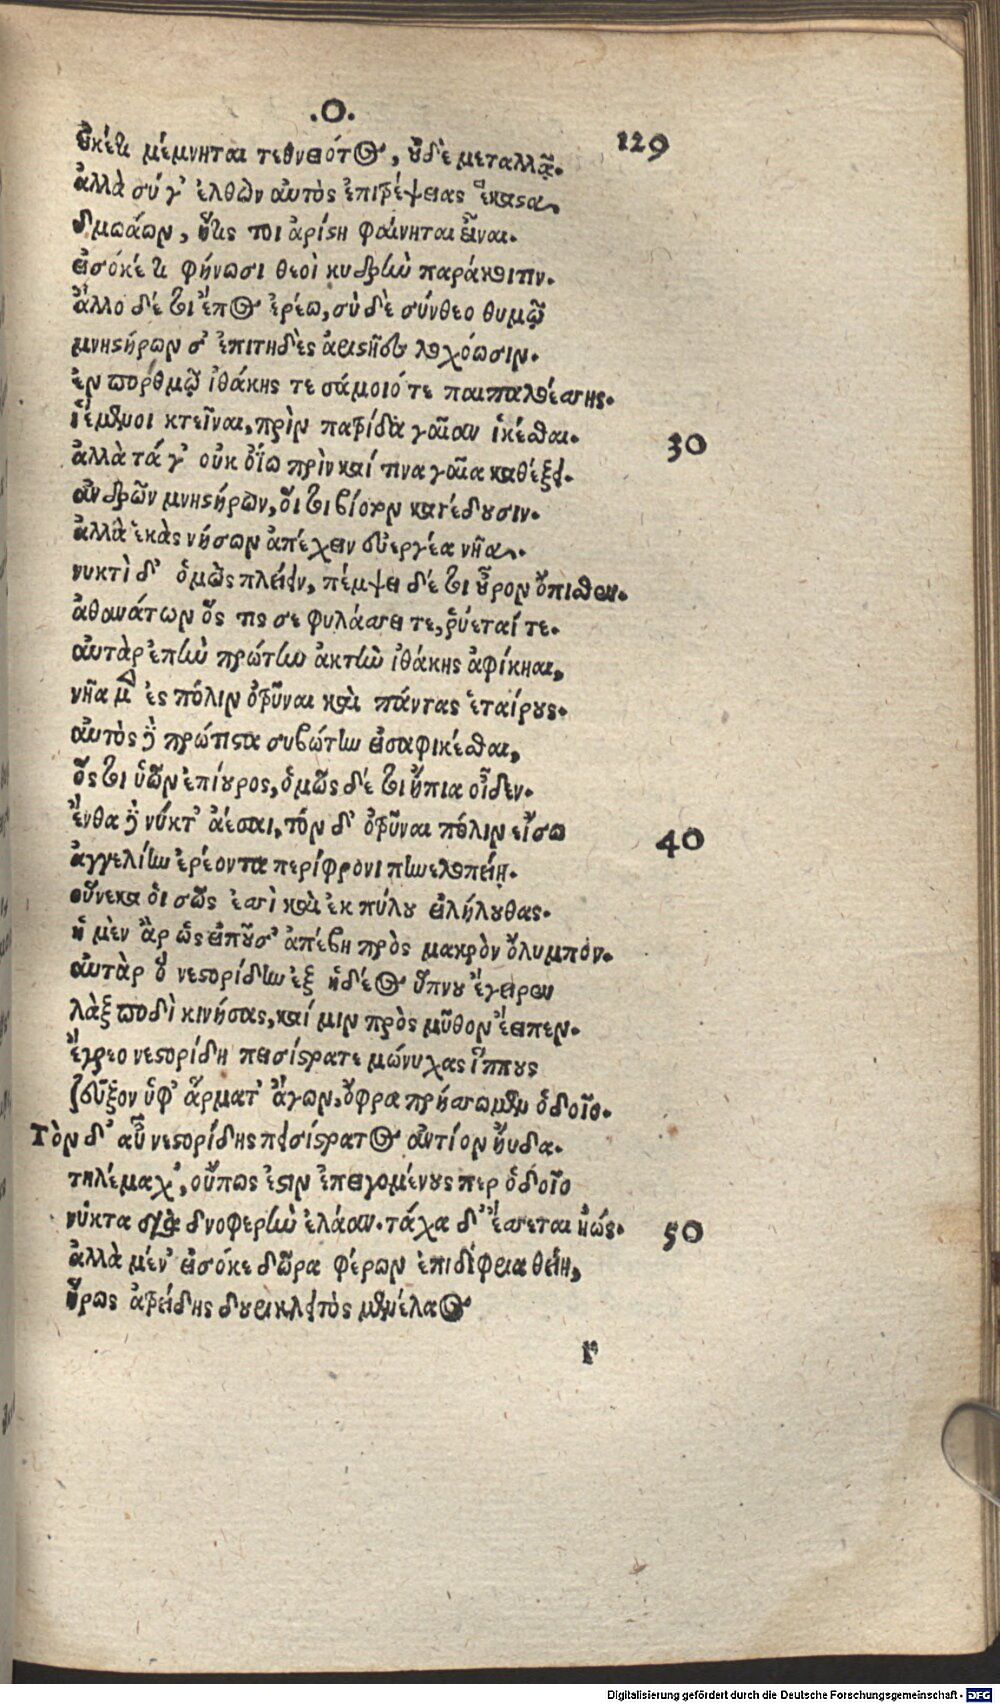 .Ο.
129
οὐκέτι μέμνηται τεθνειότος, οὐδὲ μεταλλᾷ.
ἀλλὰ σύ γ' ἐλθὼν αὐτὸς ἐπιτρέψειας ἕκαστα,
δμωάων, ἥτις τοι ἀρίστη φαίνηται εἶναι.
εἰσόκέ τι φήνωσι θεοὶ κυδρὴν παράκοιτιν.
ἄλλο δέ τι ἔπος ἐρέω, σὺ δὲ σύνθεο θυμῷ
μνηστήρων σ' ἐπιτηδὲς ἀριστῆες λοχόωσιν.
ἐν πορθμῷ ἰθάκης τε σάμοιό τε παιπαλοέσσης.
ἱέμενοι κτεῖναι, πρὶν πατρίδα γαῖαν ἱκέσθαι.
30
ἀλλὰ τά γ' οὐκ ὀΐω πρὶν καί τινα γαῖα καθέξει.
ἀνδρῶν μνηστήρων, οἵ τι βίοτον κατέδουσιν.
ἀλλὰ ἑκὰς νήσων ἀπέχειν εὐεργέα νῆα.
νυκτὶ δ' ὁμῶς πλείειν, πέμψει δέ τι οὖρον ὄπισθεν.
ἀθανάτων ὅς τις σε φυλάσσει τε, ῥύεταί τε.
αὐτὰρ ἐπὴν πρώτην ἀκτὴν ἰθάκης ἀφίκηαι,
νῆα μὲν ἐς πόλιν ὀτρῦναι καὶ πάντας ἑταίρους.
αὐτὸς δὲ πρώτιστα συβώτην εἰσαφικέσθαι,
ὅς τι ὑῶν ἐπίουρος, ὁμῶς δέ τι ἤπια οἶδεν.
ἔνθα δὲ νύκτ' ἀέσαι, τόν δ' ὀτρῦναι πόλιν εἴσω
40
ἀγγελίην ἐρέοντα περίφρονι πηνελοπείῃ.
οὕνεκα οἱ σῶς ἐσσὶ καὶ ἐκ πύλου εἰλήλουθας.
ἡ μὲν ἂρ ὣς εἰποῦσ' ἀπέβη πρὸς μακρὸν ὄλυμπόν.
αὐτὰρ ὃ νεστορίδην ἐξ ἡδέος ὕπνου ἔγειρεν
λὰξ ποδὶ κινήσας, καί μιν πρὸς μῦθον ἔειπεν.
ἔγρεο νεστορίδη πεισίστρατε μώνυχας ἵππους
ζεῦξον ὑφ' ἅρματ' ἄγων, ὄφρα πρήσσωμεν ὁδοῖο.
Τὸν δ' αὖ νεστορίδης πεισίστρατος ἀντίον ηὔδα.
τηλέμαχ', οὔπως ἔστιν ἐπειγομένους περ ὁδοῖο
νύκτα διὰ δνοφερὴν ἐλάαν. τάχα δ' ἔσσεται ἠώς.
50
ἀλλὰ μέν' εἰσόκε δῶρα φέρων ἐπιδίφρια θείη,
ἥρως ἀτρείδης δουρικλειτὸς μενέλαος
r
Digitalisierung gefördert durch die Deutsche Forschungsgemeinschaft - DFG